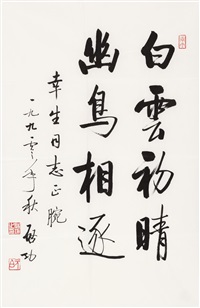 白雲初晴
幽鳥相逐
幸生同志正腕
一九九零年秋 啟功